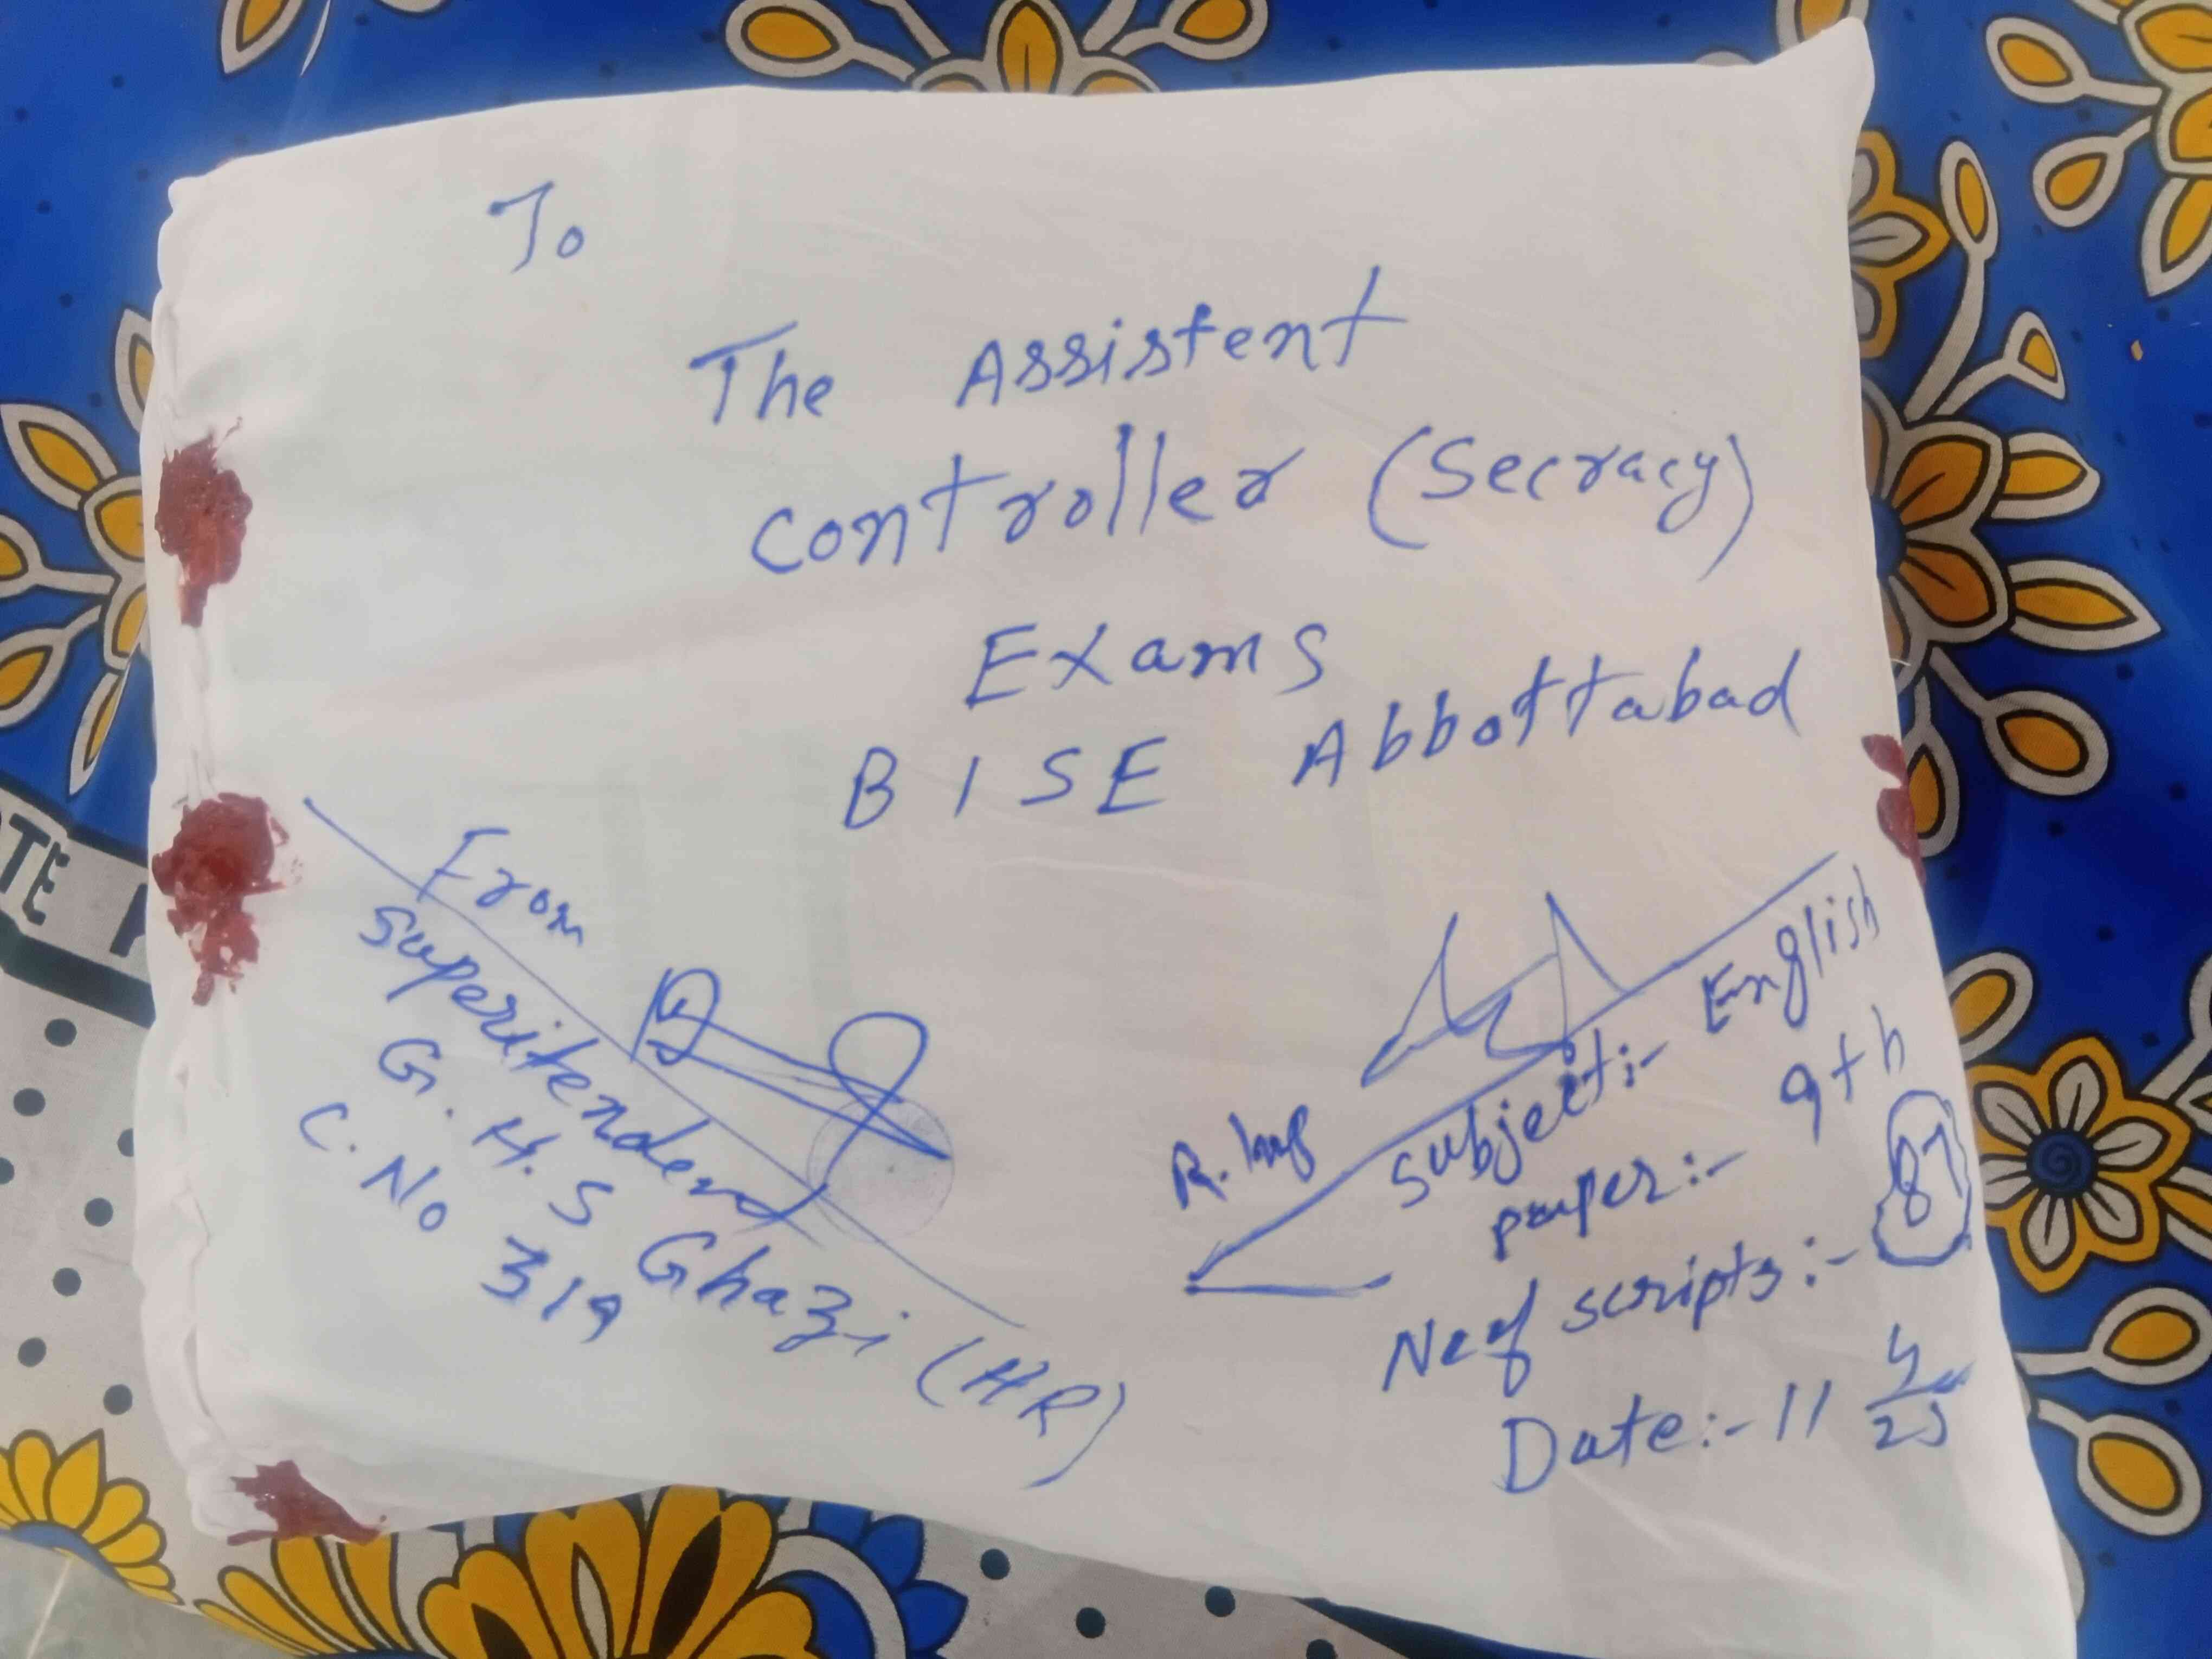 To
The Assistent
Controller (Secracy)
Exams
BISE Abbottabad
From
Superitendend
G.H.S Ghazi (HR)
C.No 319
R. Insp
Subject:- English
paper:- 9th
No of scripts:- 87
Date:- 11 4/25
TE